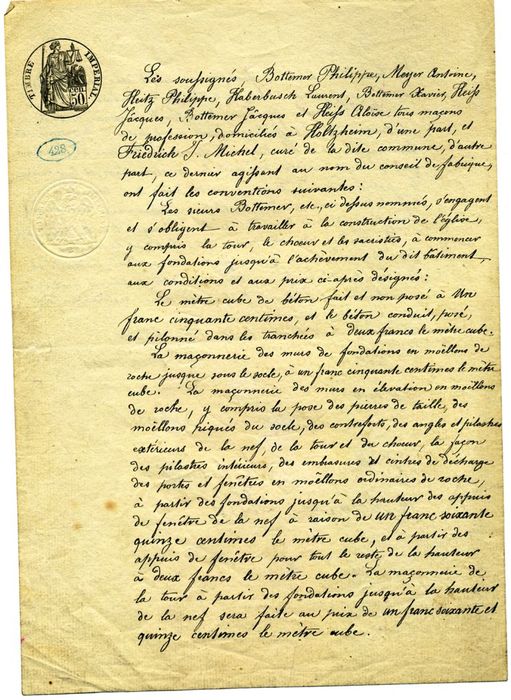 TIMBRE IMPERIAL
50 c.
428
Les soussignés, Bottemer Philippe, Meyer Antoine,
Heitz Philippe, Haberbusch Laurent, Bottemer Xavier, Heiss
Jacques, Bottemer Jacques et Heiss Aloïse tous maçons
de profession, domiciliés à Holtzheim, d'une part, et
Friedrich J. Michel, curé de la dite commune, d'autre
part, ce dernier agissant au nom du conseil de fabrique,
ont fait les conventions suivantes :
Les sieurs Bottemer, etc., ci dessus nommés, s'engagent
et s'obligent à travailler à la construction de l'église,
y compris la tour, le chœur et les sacristies, à commencer
aux fondations jusqu'à l'achèvement du dit bâtiment,
aux conditions et aux prix ci-après désignés :
Le mètre cube de béton fait et non posé à Un
franc cinquante centimes, et le béton conduit, posé,
et pilonné dans les tranchées à deux francs le mètre cube.
La maçonnerie des murs de fondations en moëllons de
roche jusque sous le socle, à un franc cinquante centimes le mètre
cube. La maçonnerie des murs en élévation en moëllons
de roche, y compris la pose des pierres de taille, des
moëllons piqués du socle, des contreforts, des angles et pilastres
extérieurs de la nef, de la tour et du chœur, la façon
des pilastres intérieurs, des embasures et cintres de décharge
des portes et fenêtres en moëllons ordinaires de roche,
à partir des fondations jusqu'à la hauteur des appuis
de fenêtre de la nef à raison de un franc soixante
quinze centimes le mètre cube, et à partir des
appuis de fenêtre pour tout le reste de la hauteur
à deux francs le mètre cube. La maçonnerie de
la tour à partir des fondations jusqu'à la hauteur
de la nef sera faite au prix de un franc soixante et
quinze centimes le mètre cube.